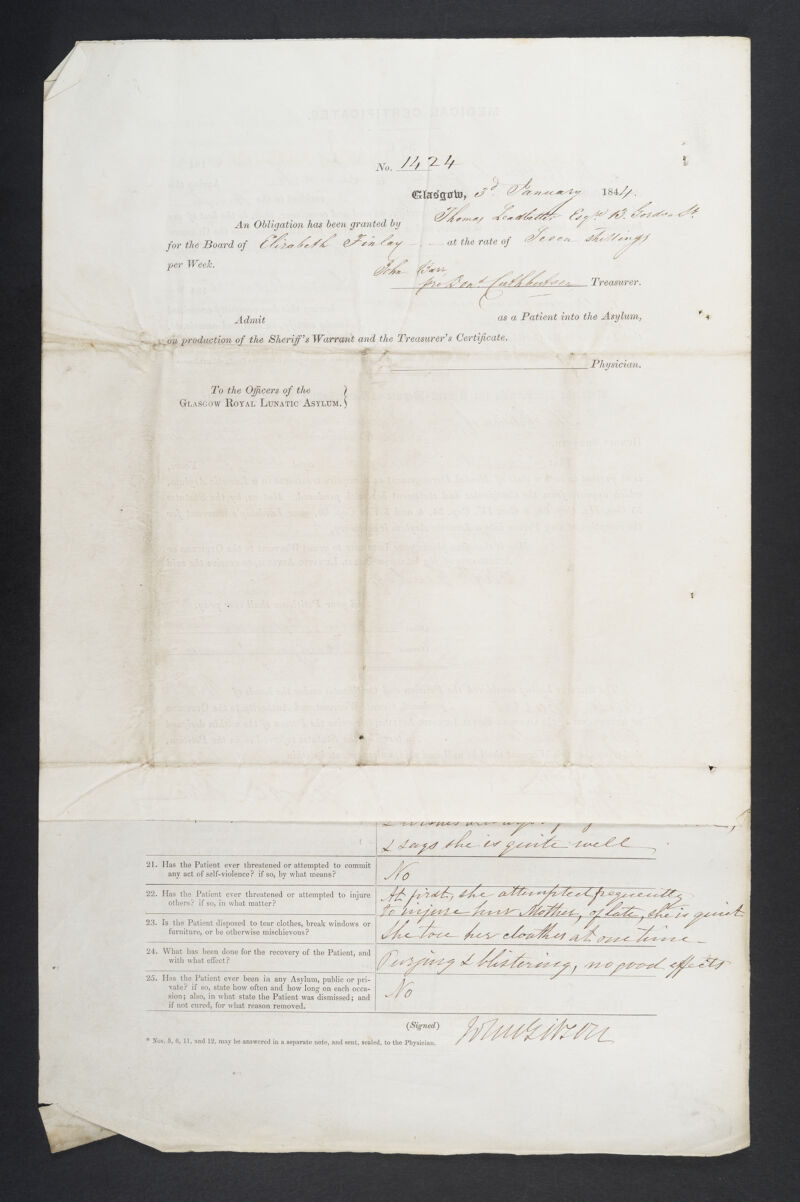 No. 1424
Glasgow, 3d. January 1844.
An Obligation has been granted by Thomas Leadbetter Esqr. Gordon St.
for the Board of Elizabeth Finlay - - at the rate of Seven Shillings
per Week.
John Barr
pro Cuthbertson Treasurer.
Admit as a Patient into the Asylum,
on production of the Sheriff's Warrant and the Treasurer's Certificate.
Physician.
To the Officers of the
Glasgow Royal Lunatic Asylum.
& says she is quite well
21. Has the Patient ever threatened or attempted to commit
any act of self-violence? if so, by what means?
No
22. Has the Patient ever threatened or attempted to injure
others? if so, in what matter?
At first, she attempted frequently
to injure hur Mother, of late, she is quiet
23. Is the Patient disposed to tear clothes, break windows or
furniture, or be otherwise mischievous?
She tore her cloathes at one time -
24. What has been done for the recovery of the Patient, and
with what effect?
Purging & blistering, no good effects
25. Has the Patient ever been in any Asylum, public or pri-
vate? if so, state how often and how long on each occa-
sion; also, in what state the Patient was dismissed; and
if not cured, for what reason removed.
No
(Signed) John Gibson
* Nos. 3, 6, 11, and 12, may be answered in a separate note, and sent, sealed, to the Physician.